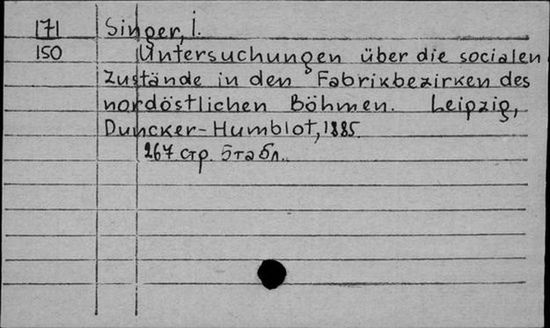 171 Singer, i.
150 Untersuchungen über die socialen
Zustände in den Fabrikbezirken des
nordöstlichen Böhmen. Leipzig,
Duncker-Humblot, 1885.
267 стр. 5 табл.